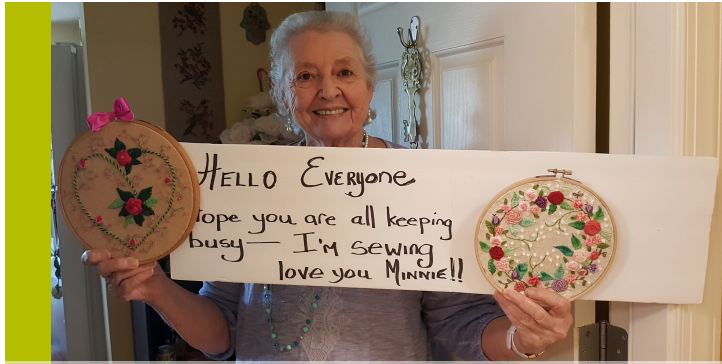 HELLO EVERYONE
hope you are all keeping
busy — I'M SEWING
love you MINNIE!!